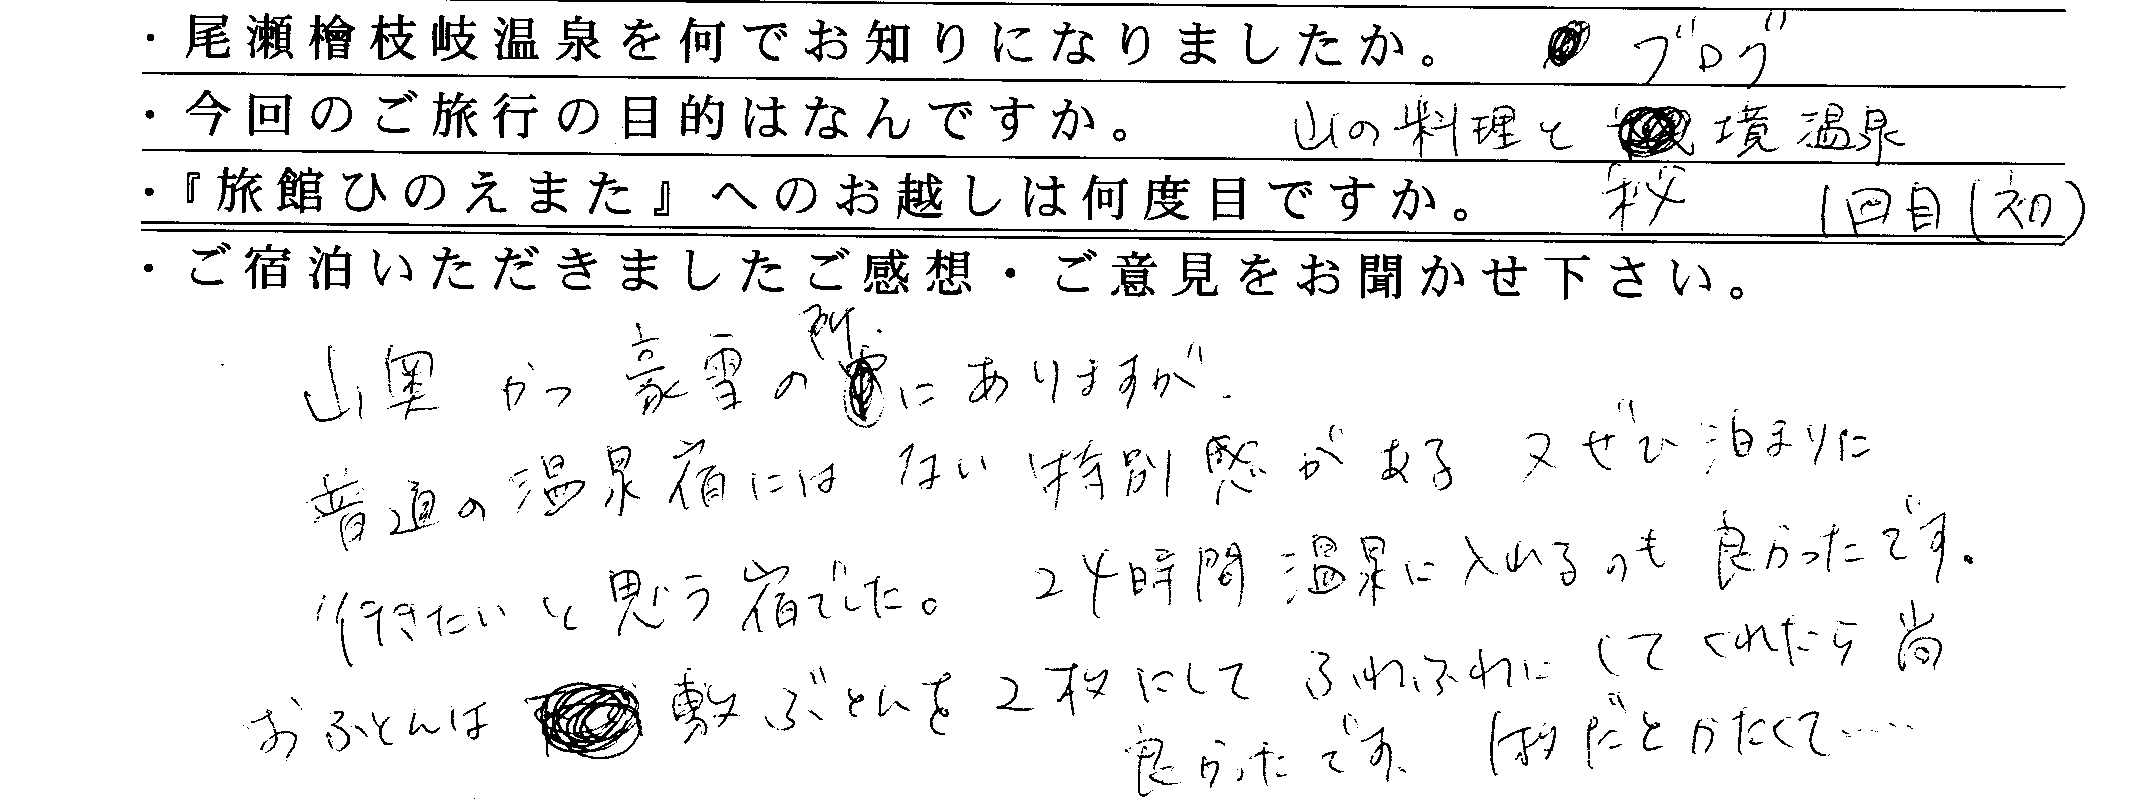 ・尾瀬檜枝岐温泉を何でお知りになりましたか。 ブログ
・今回のご旅行の目的はなんですか。 山の料理と秘境温泉
・『旅館ひのえまた』へのお越しは何度目ですか。 1回目(初)
・ご宿泊いただきましたご感想・ご意見をお聞かせ下さい。
山奥かつ豪雪の所にありますが、
普通の温泉宿にはない特別感がある 又ぜひ泊まりに
行きたいと思う宿でした。 24時間温泉に入れるのも良かったです。
おふとんは敷ぶとんを2枚にしてふわふわにしてくれたら尚
良かったです、 1枚だとかたくて……